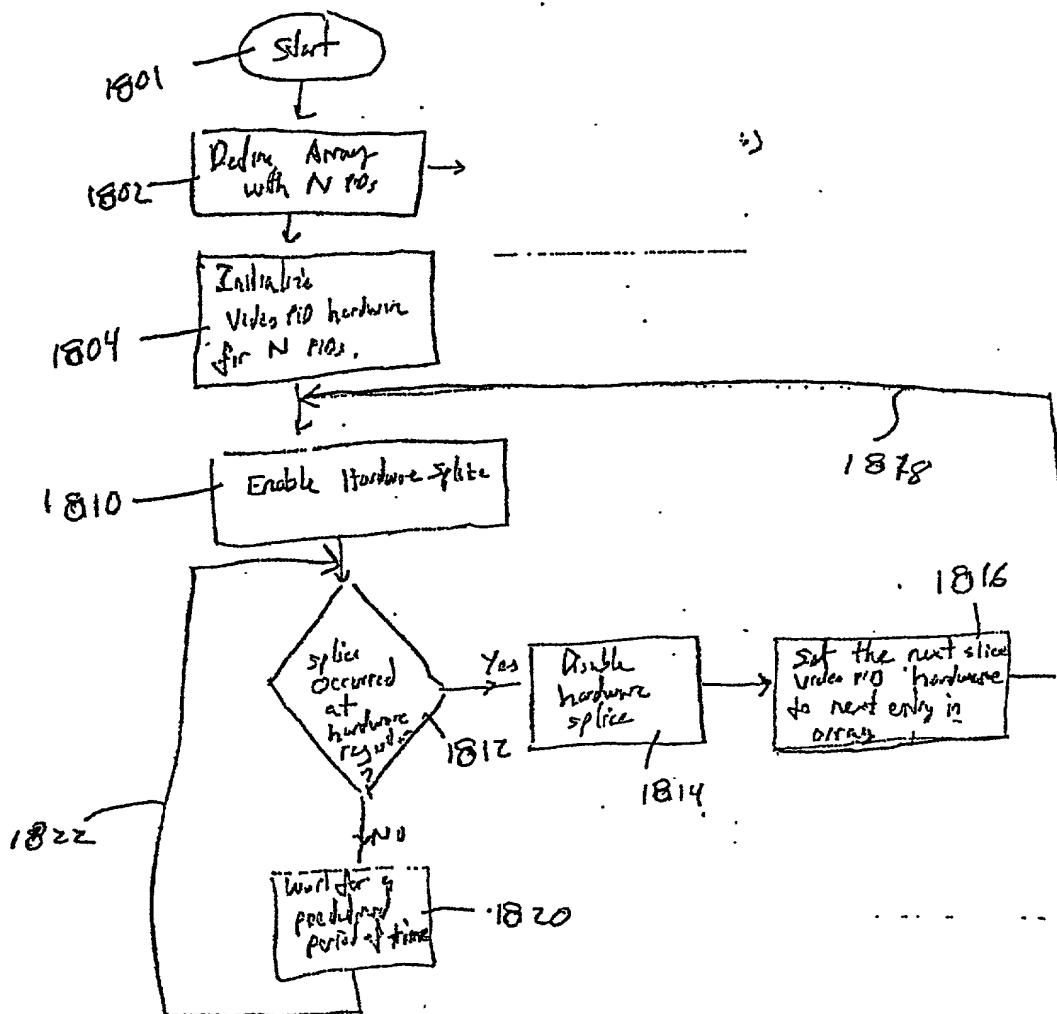 Start
1801
Define Array
with N PIDs
1802
Initialize
Video PID hardware
for N PIDs.
1804
1878
Enable Hardware Splice
1810
1816
splice
occurred
at
hardware
?
1812
Yes
Disable
hardware
splice
1814
Set the next slice
video PID hardware
to next entry in
array
1822
NO
Wait for a
period of time
1820